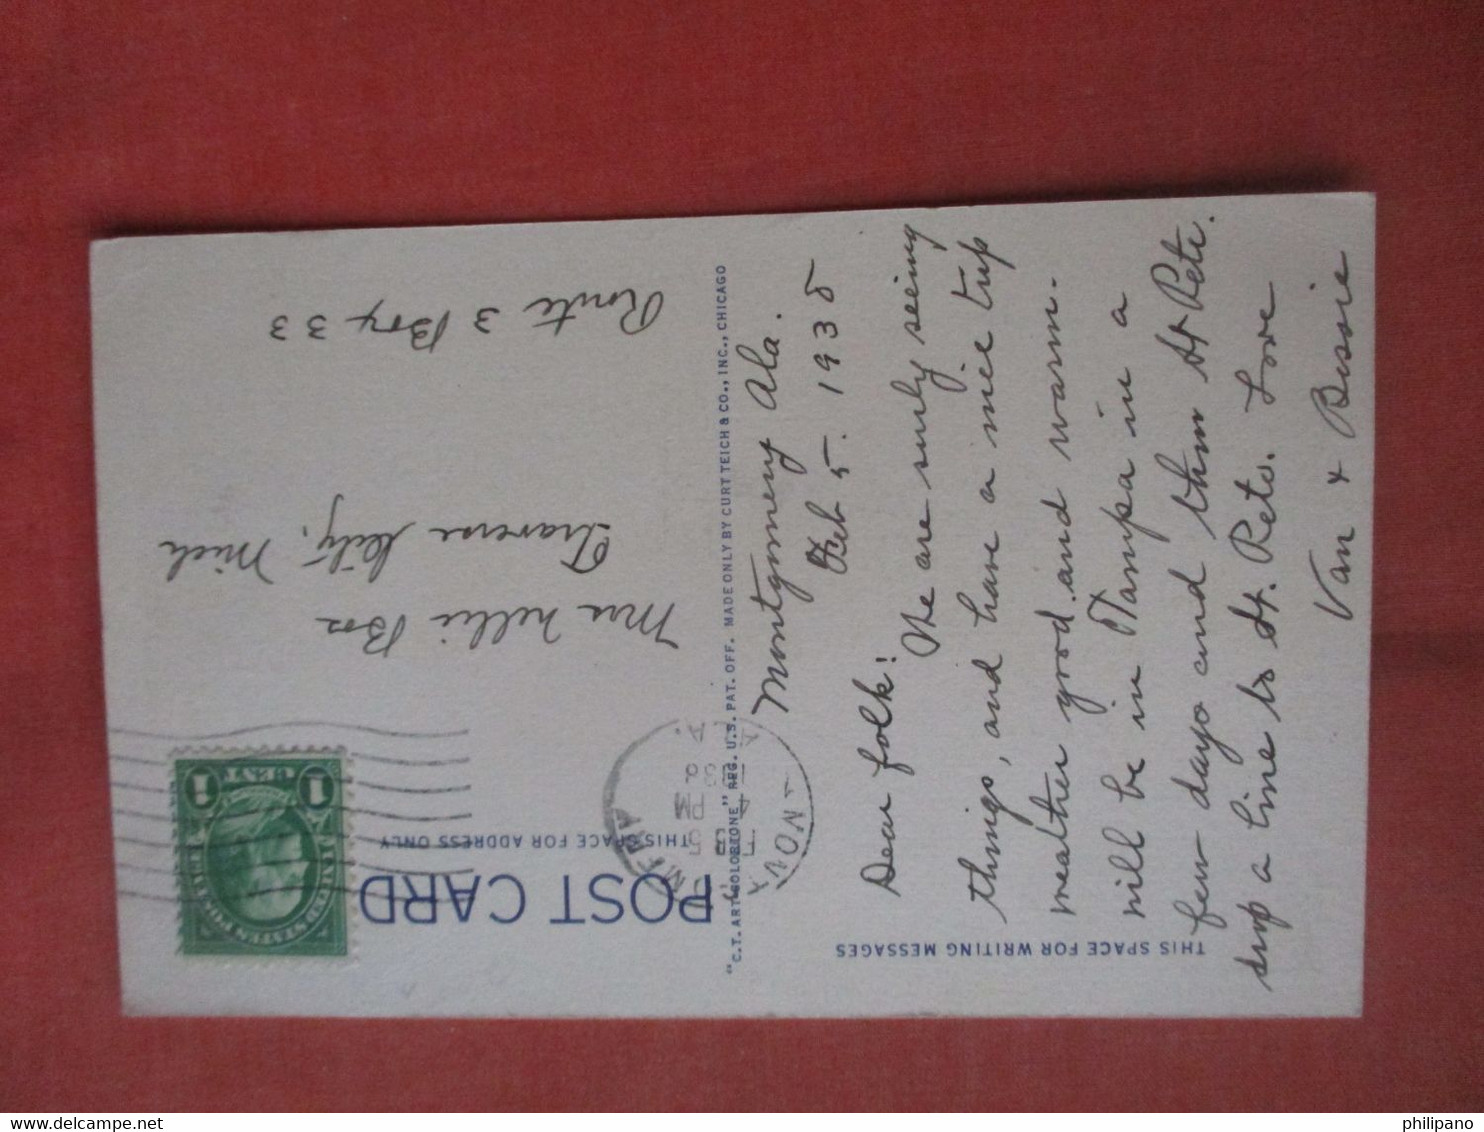 THIS SPACE FOR WRITING MESSAGES
Montgomery Ala.
Feb 5. 1938
Dear folk!
We are surly seeing
things, and have a nice trip
weather good and warm.
will be in Tampa in a
few days and then St Pete.
drop a line to St. Pete. Love
Van + Bessie
"C.T. ART-COLORTONE" REG. U.S. PAT. OFF. MADE ONLY BY CURT TEICH & CO., INC., CHICAGO
POST CARD
THIS SPACE FOR ADDRESS ONLY
FEB 5
4 PM
1938
ALA.
1 CENT 1
Mrs Nellie Bos
Traverse City, Mich
Route 3 Box 33
philipano